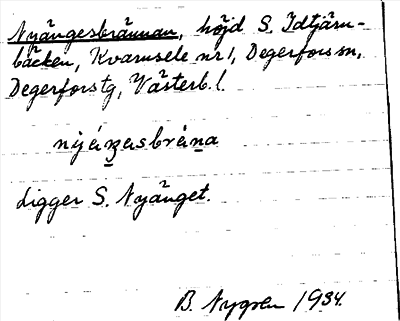 Nyängesbrännan, höjd S. Idtjärn-
bäcken, Kvarnsele nr 1, Degerfors sn,
Degerfors tg, Västerb. l.
ligger S. Nyänget.
B. Nygren 1934.